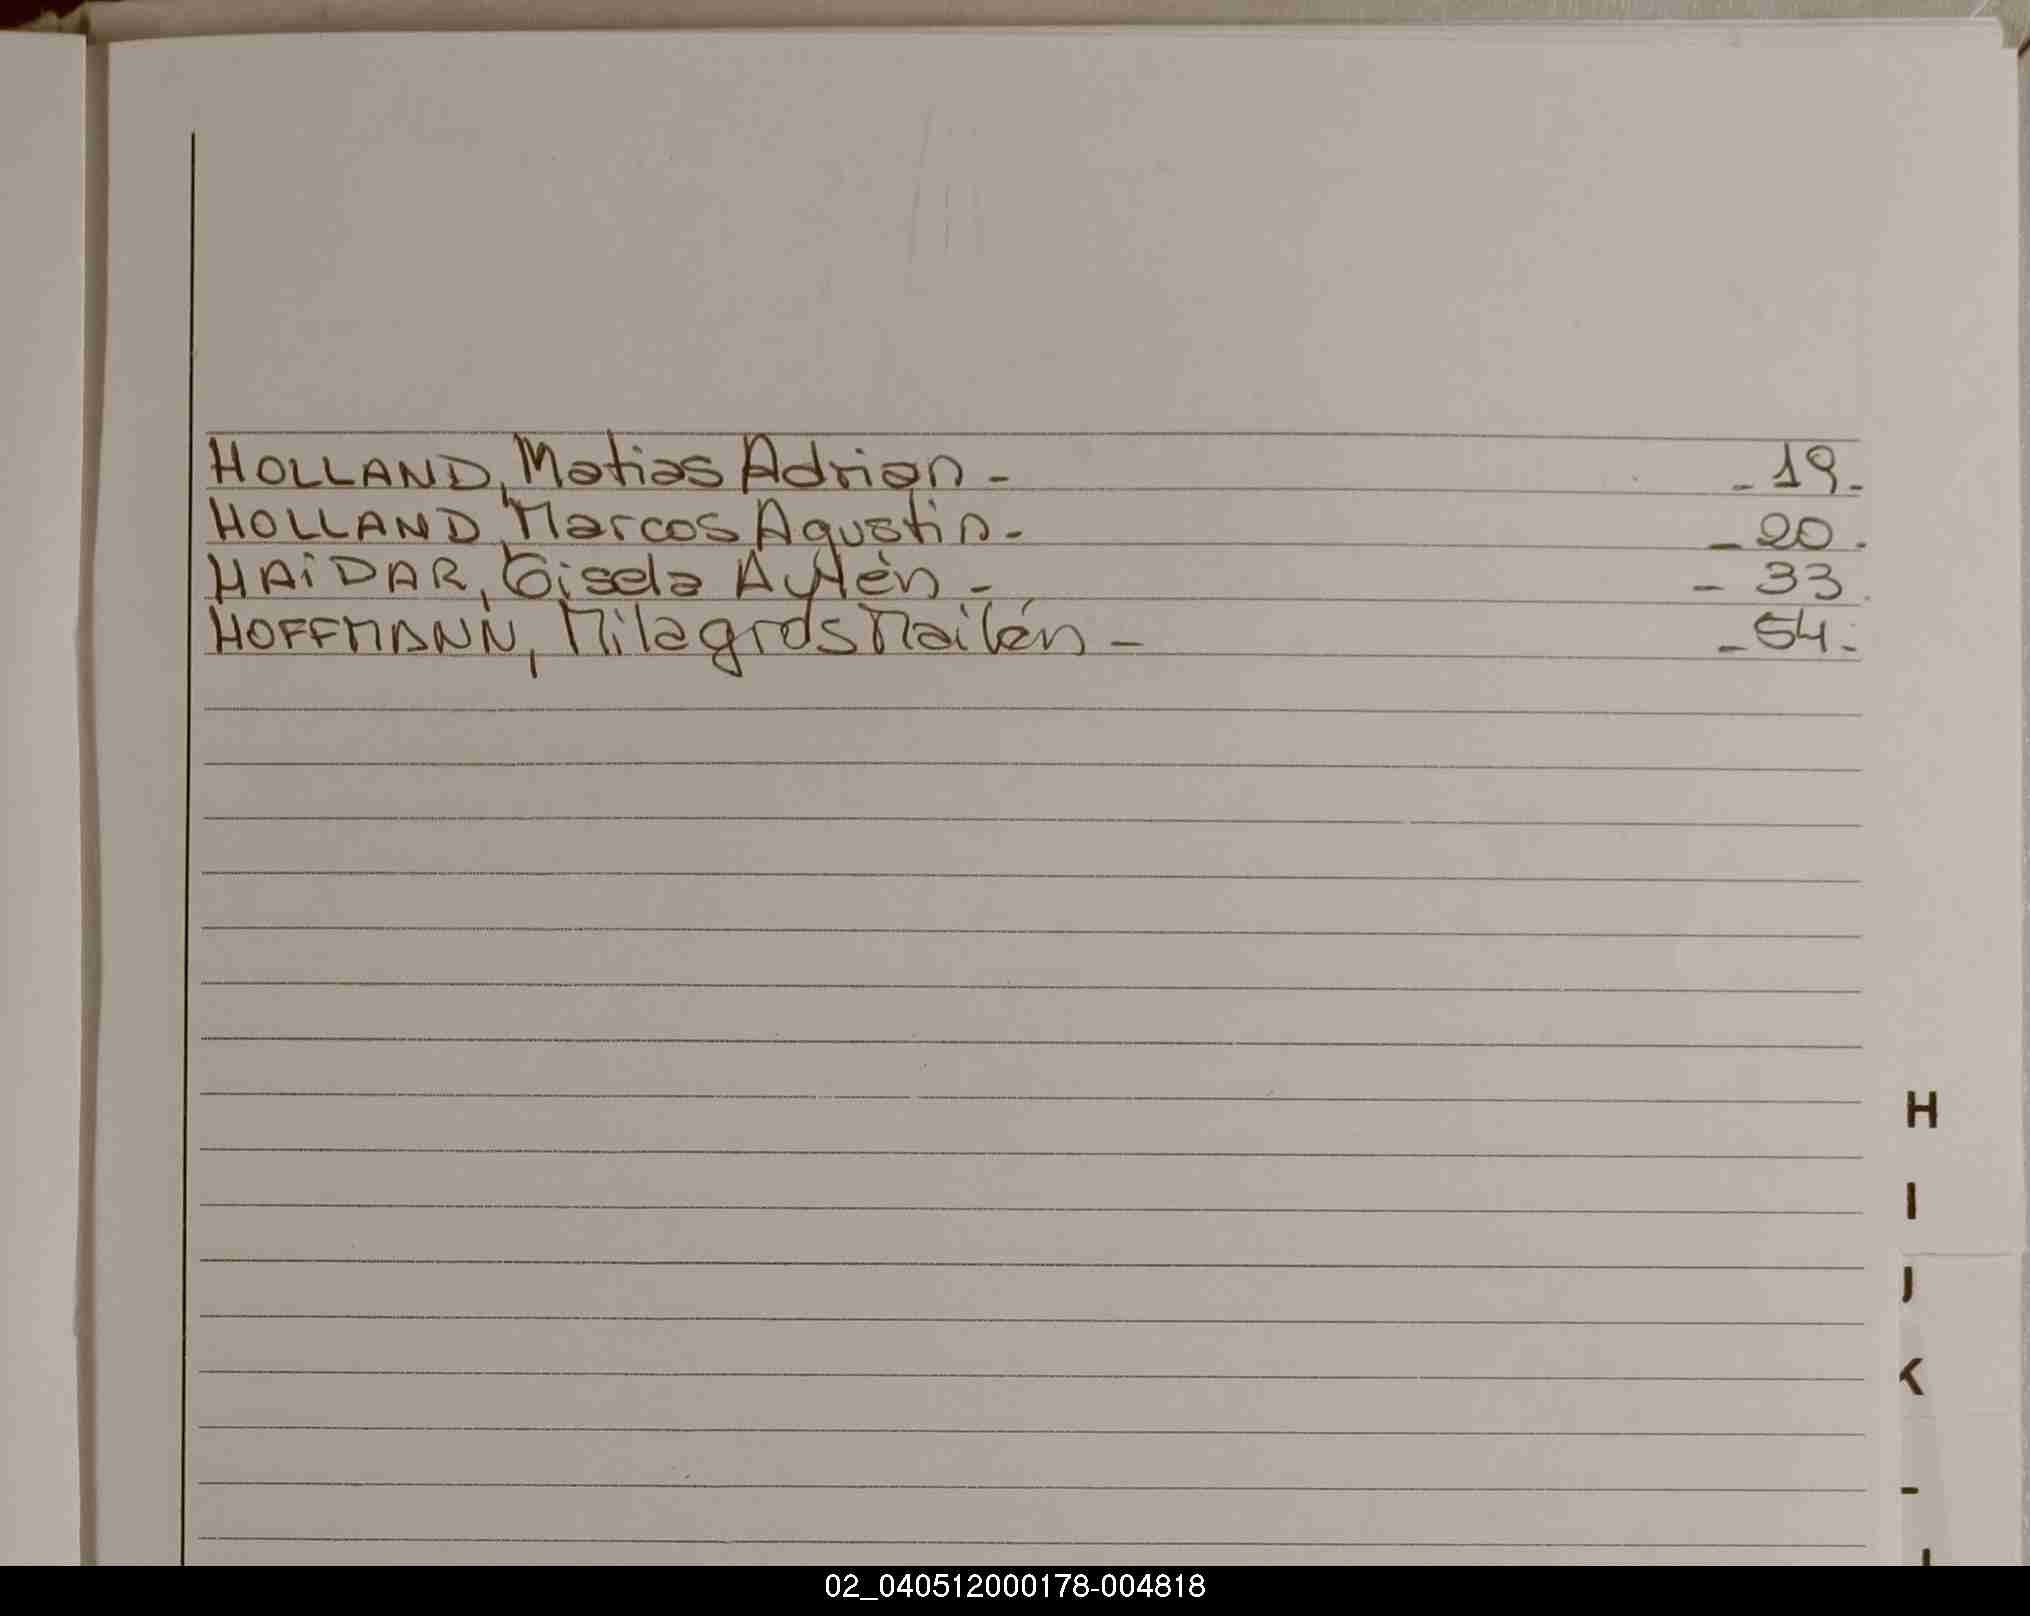 HOLLAND, Matias Adrian - - 19 -
HOLLAND, Marcos Agustin - - 20 -
HAiDAR, Gisela Aylén - - 33
HOFFMANN, Milagros Mailén - - 54 -
H
I
J
K
02_040512000178-004818